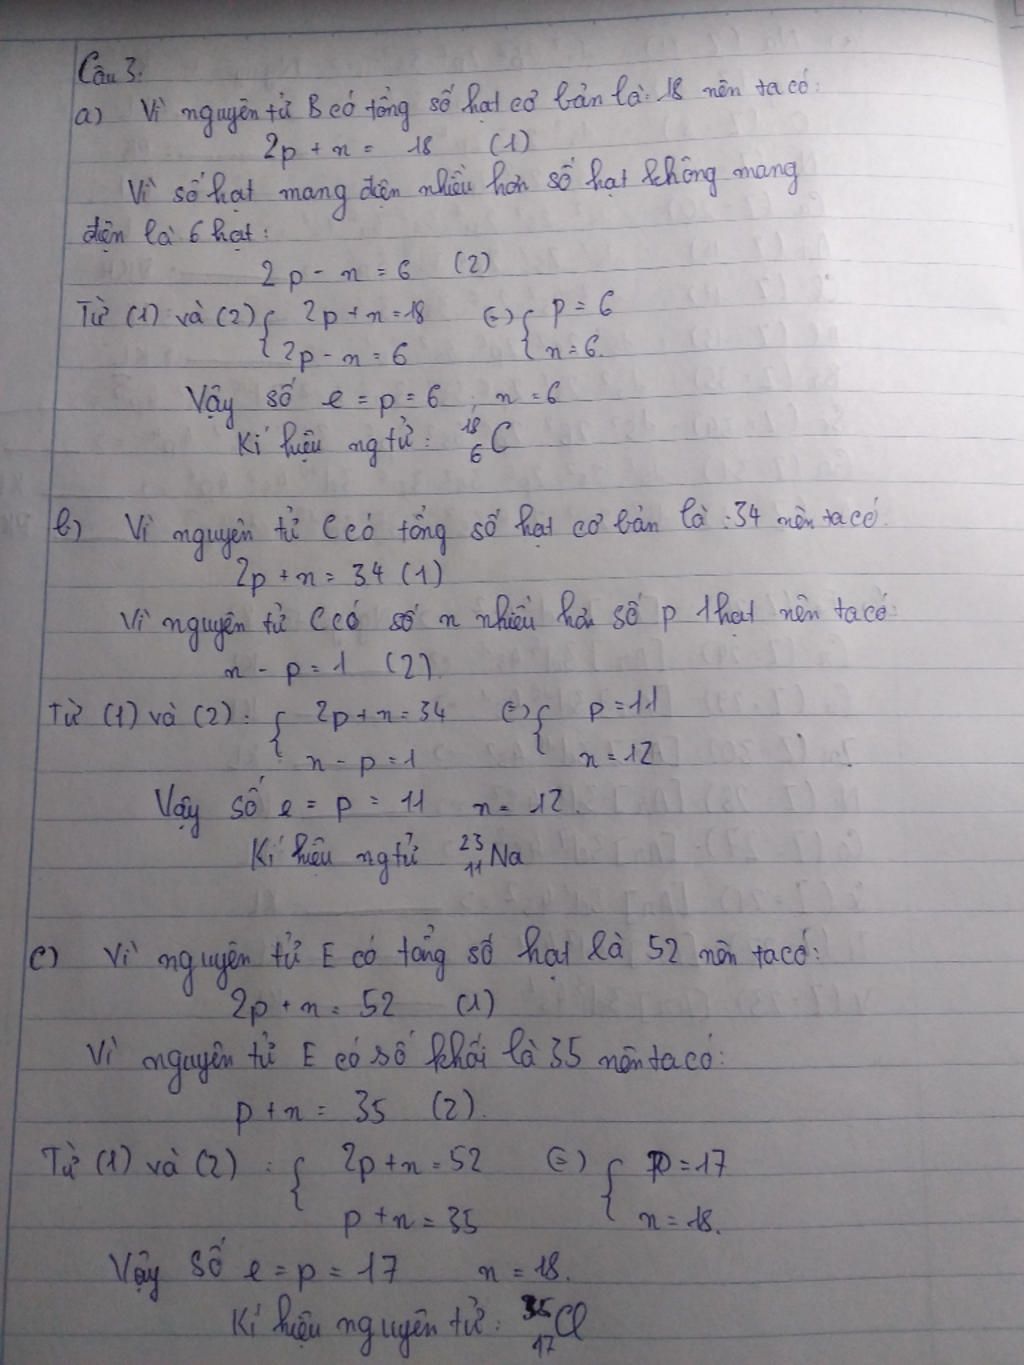 Câu 3:
a) Vì nguyên tử B có tổng số hạt cơ bản là: 18 nên ta có:
2p + n = 18 (1)
Vì số hạt mang điện nhiều hơn số hạt không mang
điện là 6 hạt:
2p - n = 6 (2)
Từ (1) và (2) { 2p + n = 18 (=) { p = 6
2p - n = 6 n = 6.
Vậy số e = p = 6 ; n = 6
Kí hiệu ng tử: ¹⁸₆C
b) Vì nguyên tử C có tổng số hạt cơ bản là: 34 nên ta có.
2p + n = 34 (1)
Vì nguyên tử C có số n nhiều hơn số p 1 hạt nên ta có:
n - p = 1 (2).
Từ (1) và (2): { 2p + n = 34 (=) { p = 11
n - p = 1 n = 12
Vậy số e = p = 11 n = 12.
Kí hiệu ng tử ²³₁₁Na
c) Vì nguyên tử E có tổng số hạt là 52 nên ta có:
2p + n = 52 (1)
Vì nguyên tử E có số khối là 35 nên ta có:
p + n = 35 (2).
Từ (1) và (2): { 2p + n = 52 (=) { p = 17
p + n = 35 n = 18.
Vậy số e = p = 17 n = 18.
Kí hiệu nguyên tử: ³⁵₁₇Cl